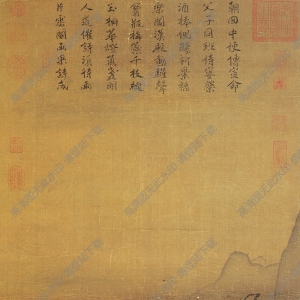 朝回中使傳宣命
父子同班侍宴榮
酒捧倪觴祈景福
樂聞漢殿動驩聲
寶瓶梅蕊千枝綻
玉柵華燈萬盞明
人道催詩須待雨
片雲閣雨果詩成